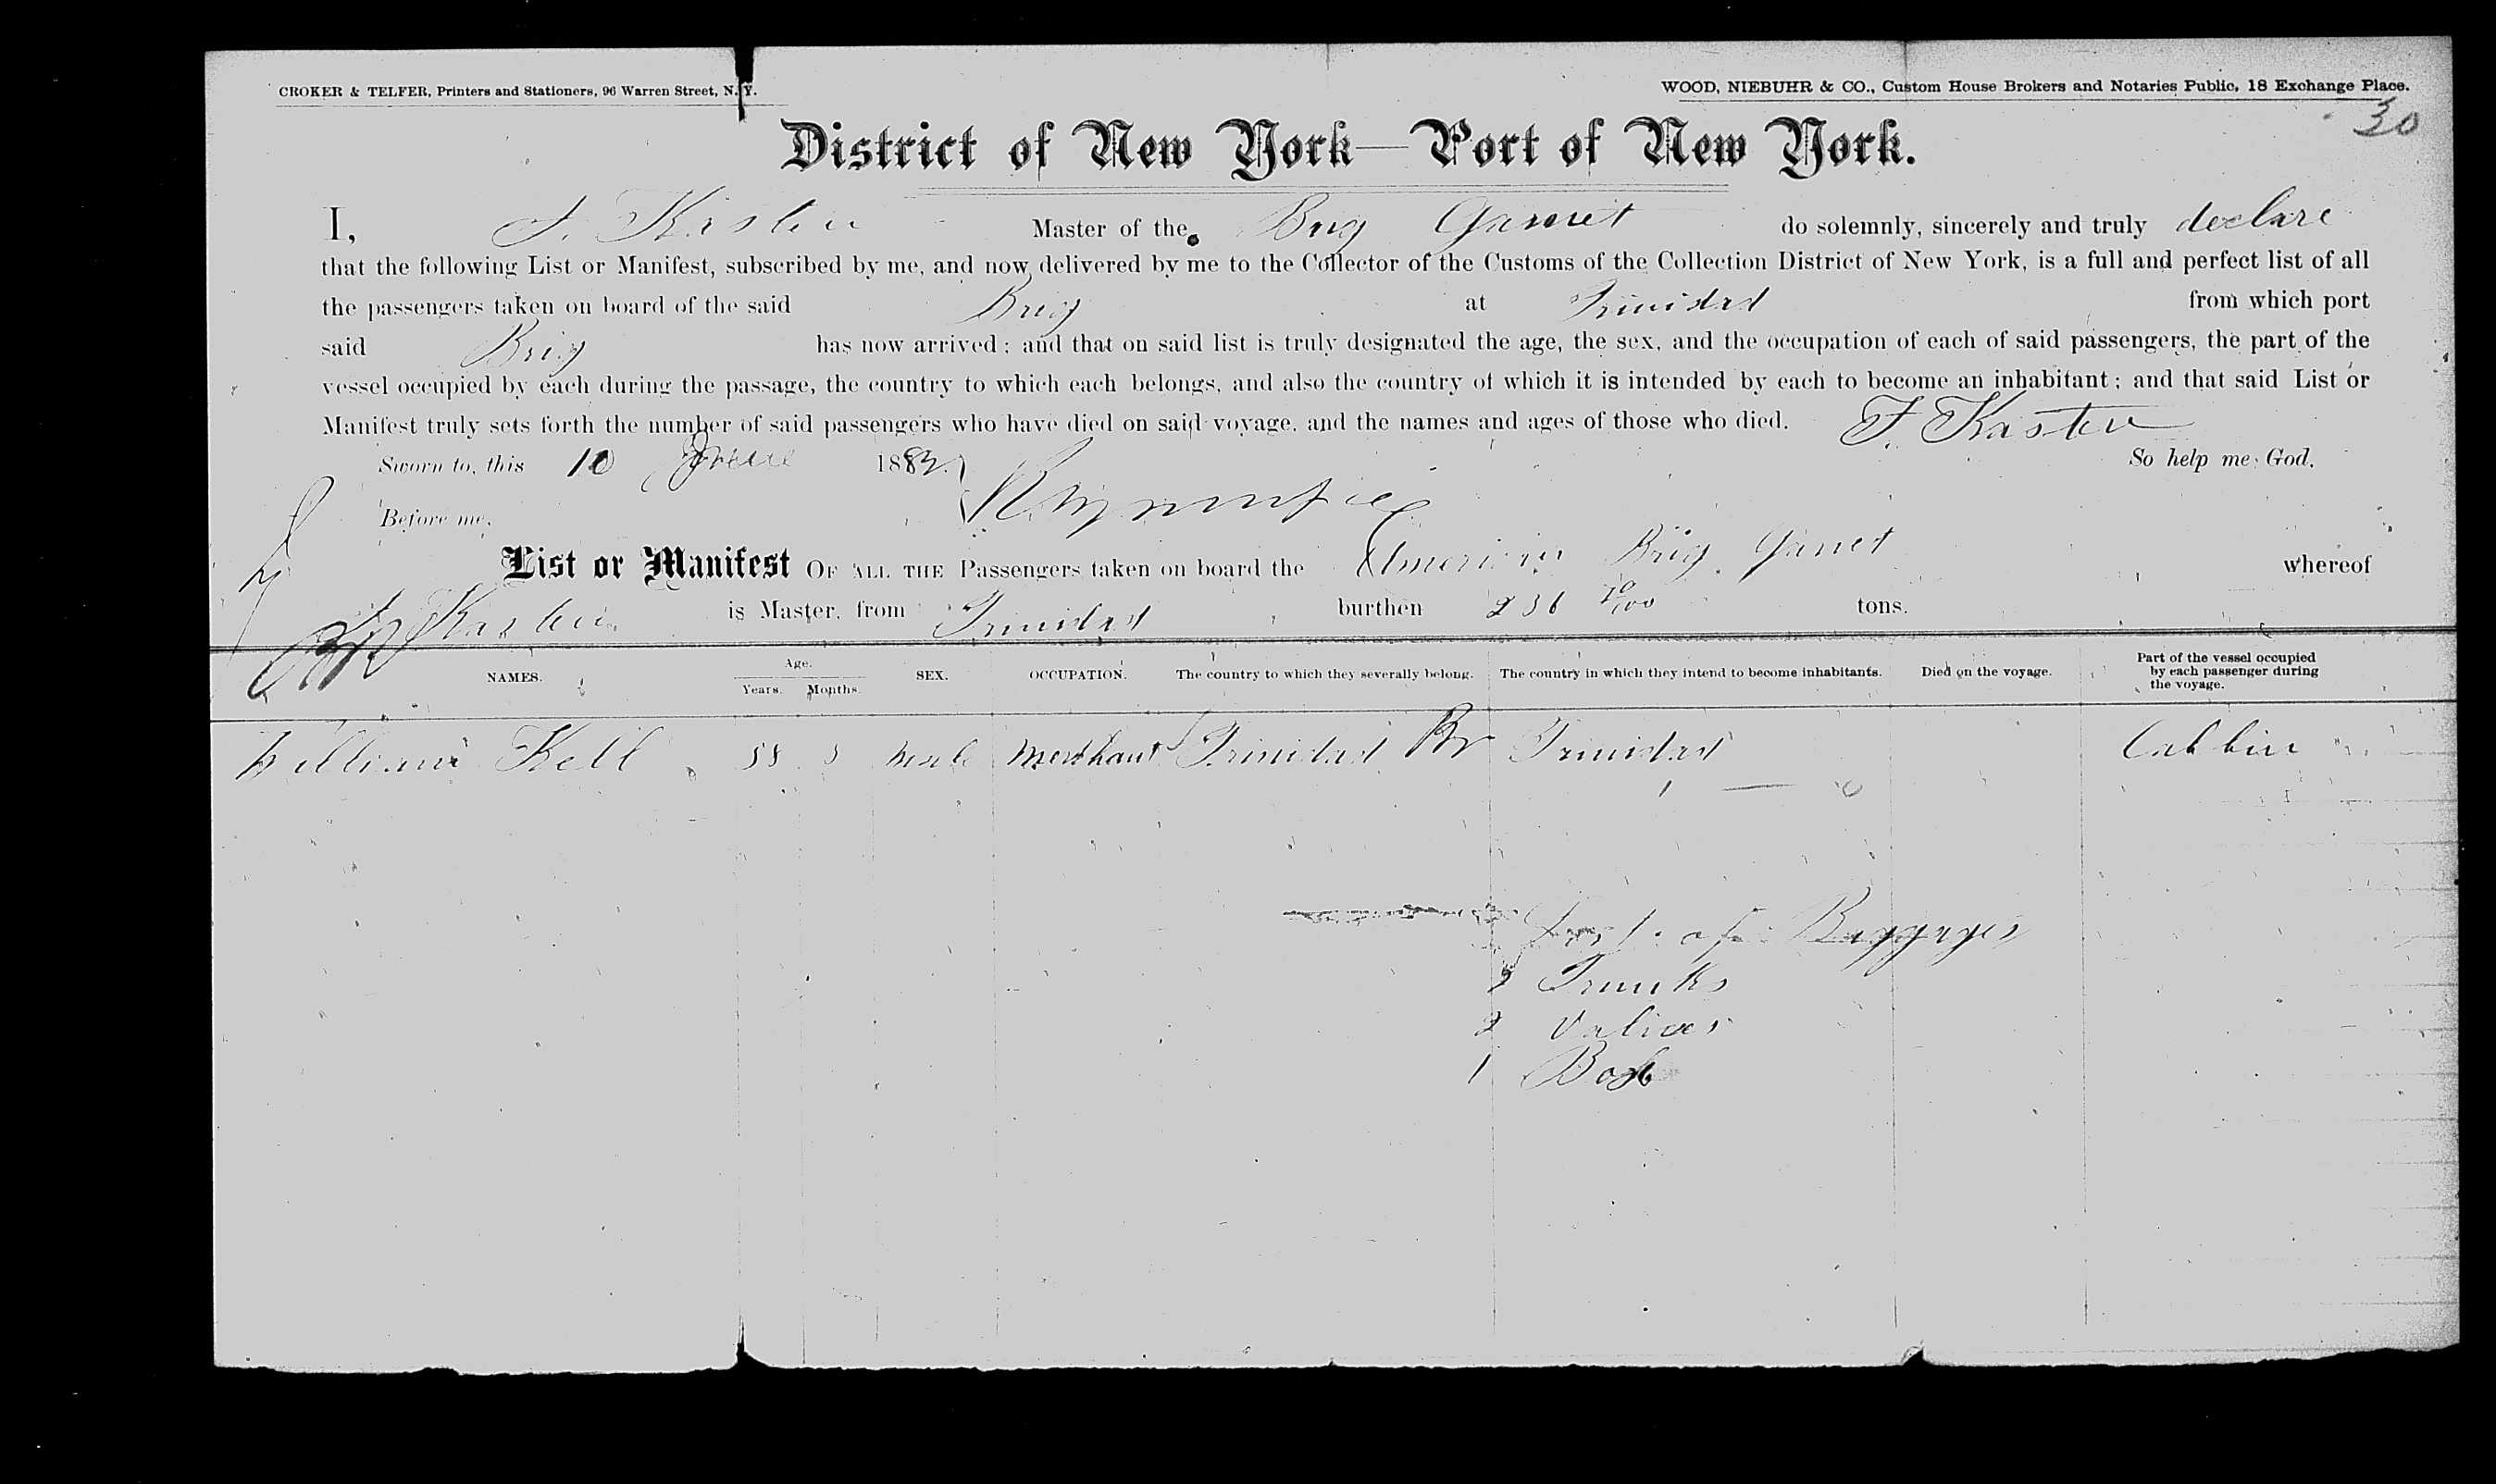 CROKER & TELFER, Printers and Stationers, 96 Warren Street, N. Y.
WOOD, NIEBUHR & CO., Custom House Brokers and Notaries Public, 18 Exchange Place.
30
District of New York—Port of New York.
I, F. Kasten Master of the Brig Garnet do solemnly, sincerely and truly declare
that the following List or Manifest, subscribed by me, and now delivered by me to the Collector of the Customs of the Collection District of New York, is a full and perfect list of all
the passengers taken on board of the said Brig at Trinidad from which port
said Brig has now arrived; and that on said list is truly designated the age, the sex, and the occupation of each of said passengers, the part of the
vessel occupied by each during the passage, the country to which each belongs, and also the country of which it is intended by each to become an inhabitant; and that said List or
Manifest truly sets forth the number of said passengers who have died on said voyage, and the names and ages of those who died. F. Kasten
Sworn to, this 10 June 188 So help me God.
Before me,
List or Manifest OF ALL THE Passengers taken on board the American Brig Garnet whereof
F Kasten is Master, from Trinidad burthen 236 10/100 tons.
NAMES. Age. Years. Months. SEX. OCCUPATION. The country to which they severally belong. The country in which they intend to become inhabitants. Died on the voyage. Part of the vessel occupied by each passenger during the voyage.
William Kell 58 male merchant Trinidad Br Trinidad Cabbin
List of Baggages
Trunks
2 Valices
1 Box